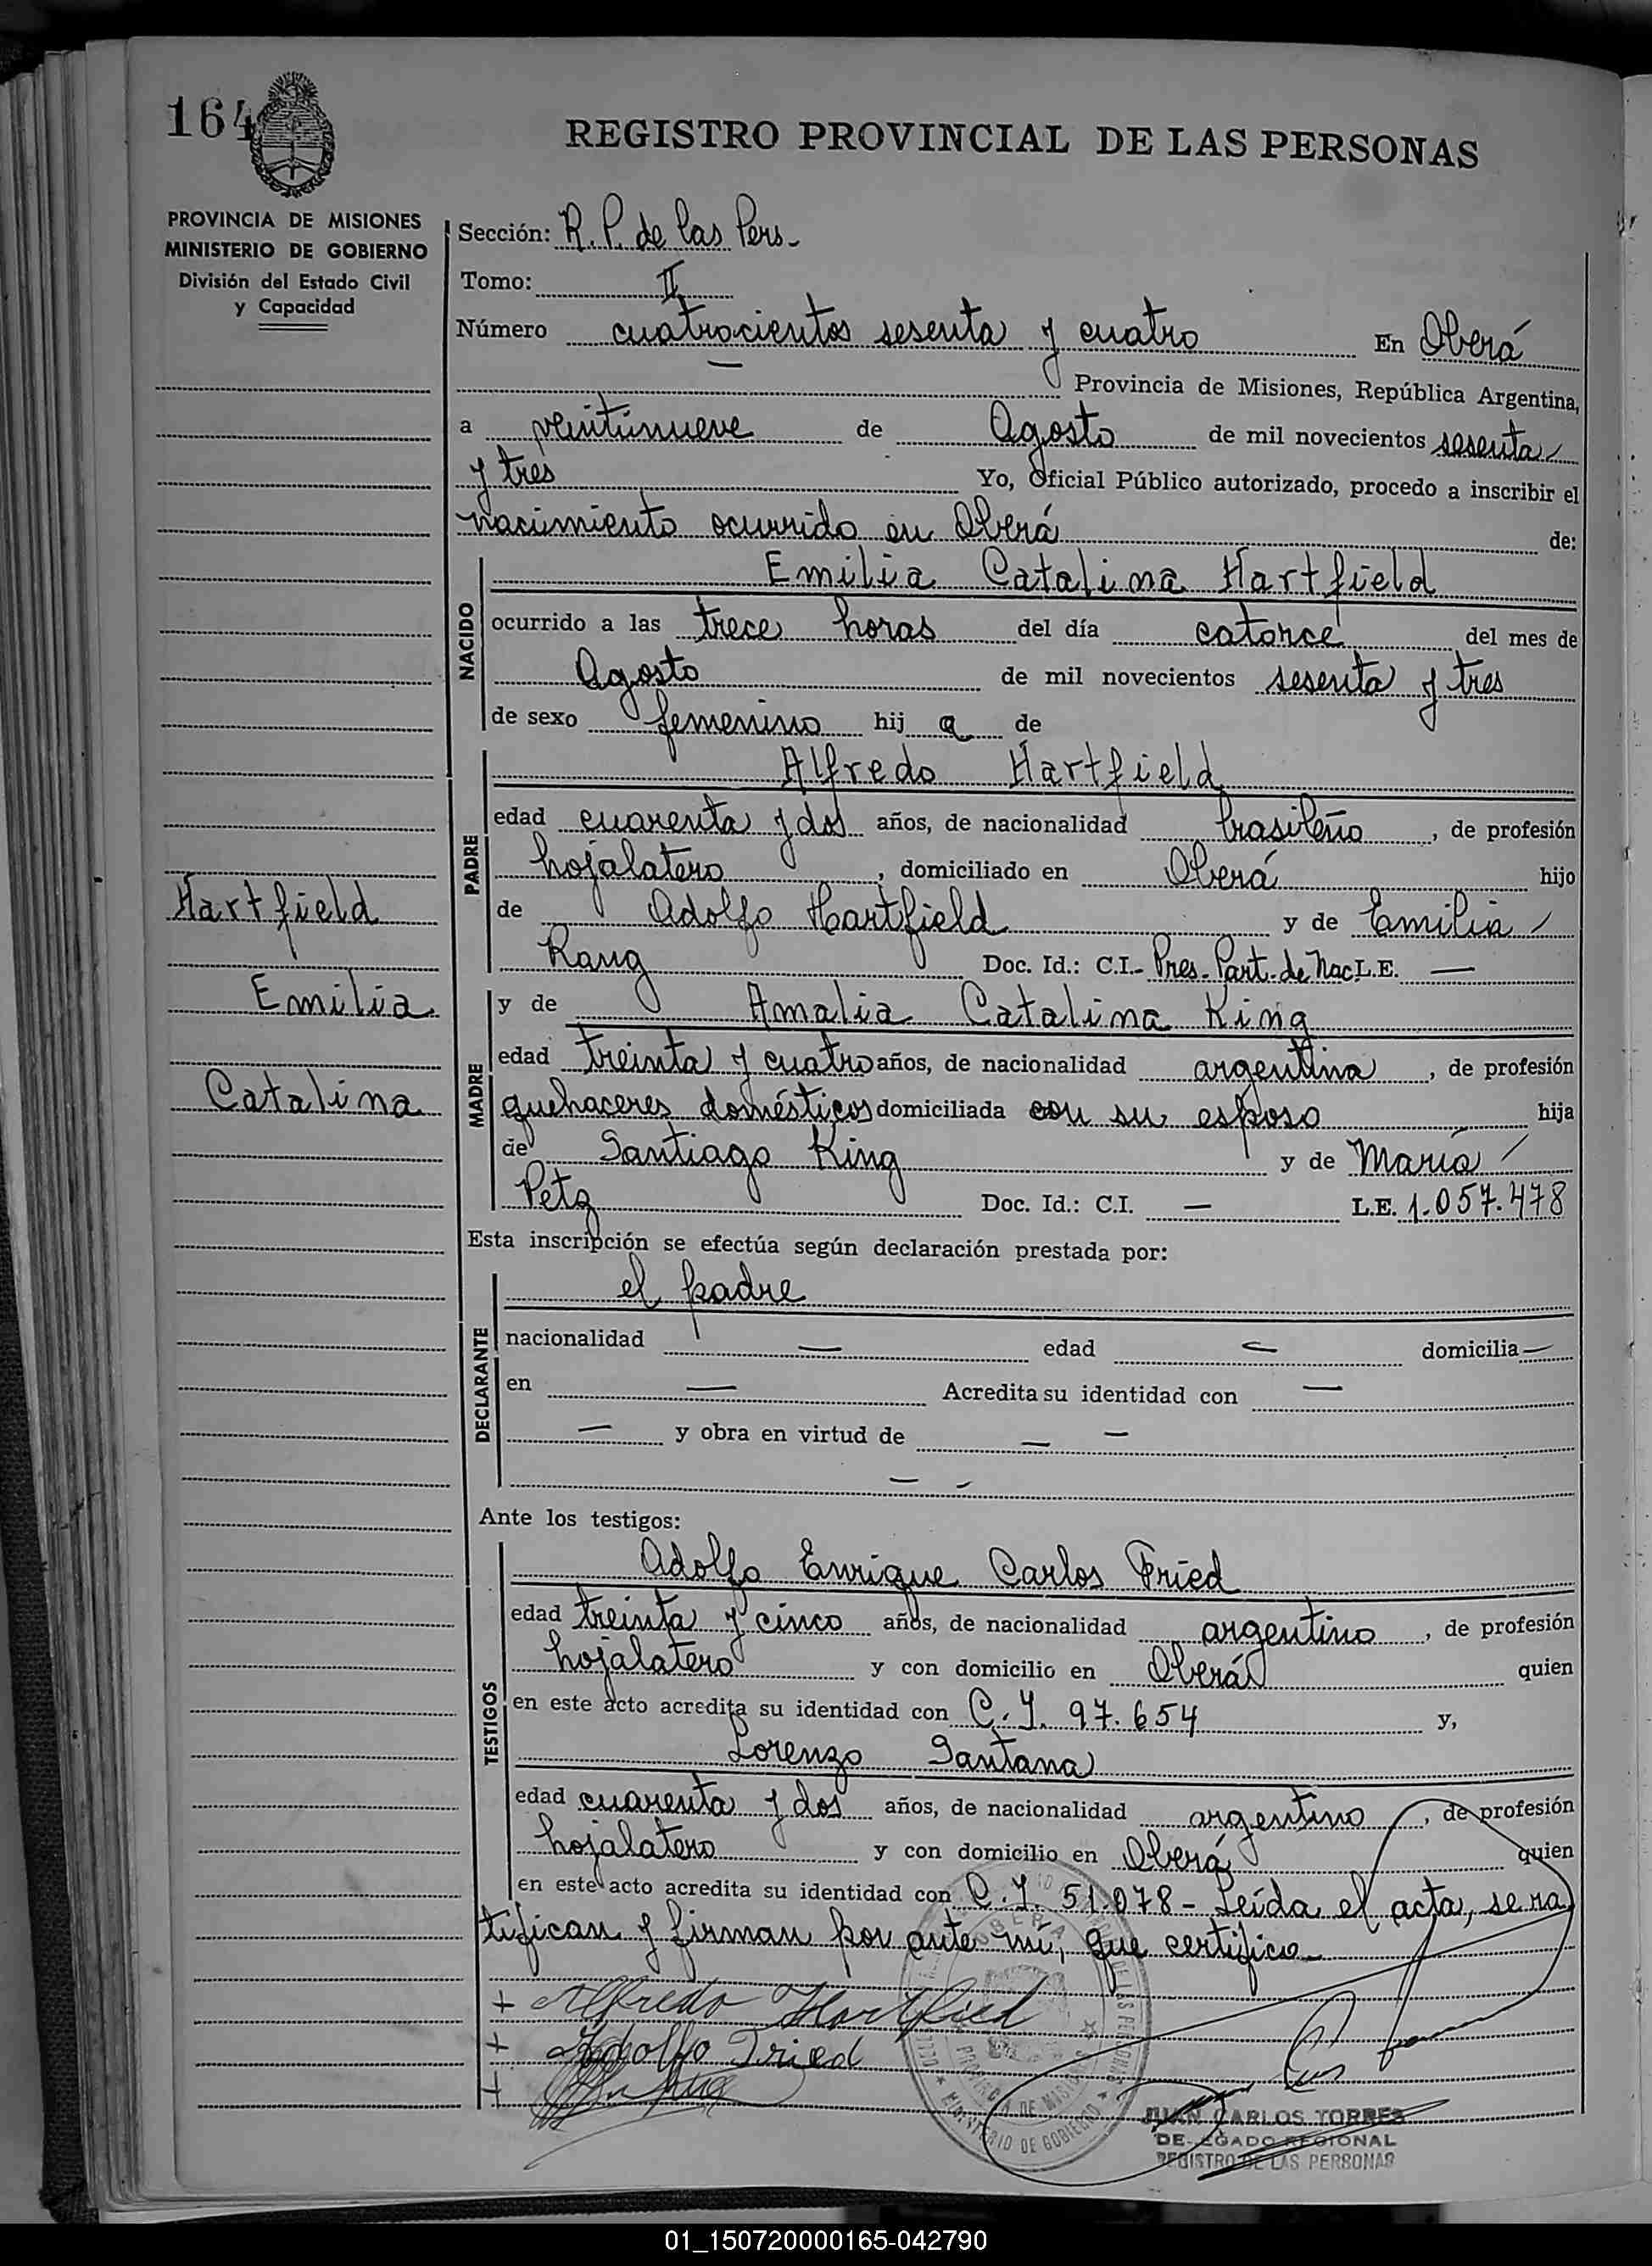 164
REGISTRO PROVINCIAL DE LAS PERSONAS
PROVINCIA DE MISIONES
MINISTERIO DE GOBIERNO
División del Estado Civil
y Capacidad
Sección: R. P. de las Pers.-
Tomo: II
Número cuatrocientos sesenta y cuatro En Oberá
— Provincia de Misiones, República Argentina,
a veintinueve de Agosto de mil novecientos sesenta
y tres Yo, Oficial Público autorizado, procedo a inscribir el
nacimiento ocurrido en Oberá de:
NACIDO
Emilia Catalina Hartfield
ocurrido a las trece horas del día catorce del mes de
Agosto de mil novecientos sesenta y tres
de sexo femenino hij a de
PADRE
Alfredo Hartfield
edad cuarenta y dos años, de nacionalidad brasileño, de profesión
hojalatero, domiciliado en Oberá hijo
de Adolfo Hartfield y de Emilia
Rang Doc. Id.: C.I.- Pres. Part. de Nac L.E. —
Hartfield
Emilia
Catalina
MADRE
y de Amalia Catalina King
edad treinta y cuatro años, de nacionalidad argentina, de profesión
quehaceres domésticos domiciliada con su esposo hija
de Santiago King y de María
Petz Doc. Id.: C.I. — L.E. 1.057.478
Esta inscripción se efectúa según declaración prestada por:
DECLARANTE
el padre
nacionalidad — edad — domicilia —
en — Acredita su identidad con —
— y obra en virtud de — —
— -
Ante los testigos:
TESTIGOS
Adolfo Enrique Carlos Fried
edad treinta y cinco años, de nacionalidad argentino, de profesión
hojalatero y con domicilio en Oberá quien
en este acto acredita su identidad con C.I. 97.654 y,
Lorenzo Santana
edad cuarenta y dos años, de nacionalidad argentino, de profesión
hojalatero y con domicilio en Oberá quien
en este acto acredita su identidad con C.I. 51.078 - Leída el acta, se ra
tifican y firman por ante mí, que certifico
+ Alfredo Hartfied
+ Adolfo Fried
+
OBERA
PROVINCIA DE MISIONES
MINISTERIO DE GOBIERNO
JUAN CARLOS TORRES
DELEGADO REGIONAL
REGISTRO DE LAS PERSONAS
01_150720000165-042790